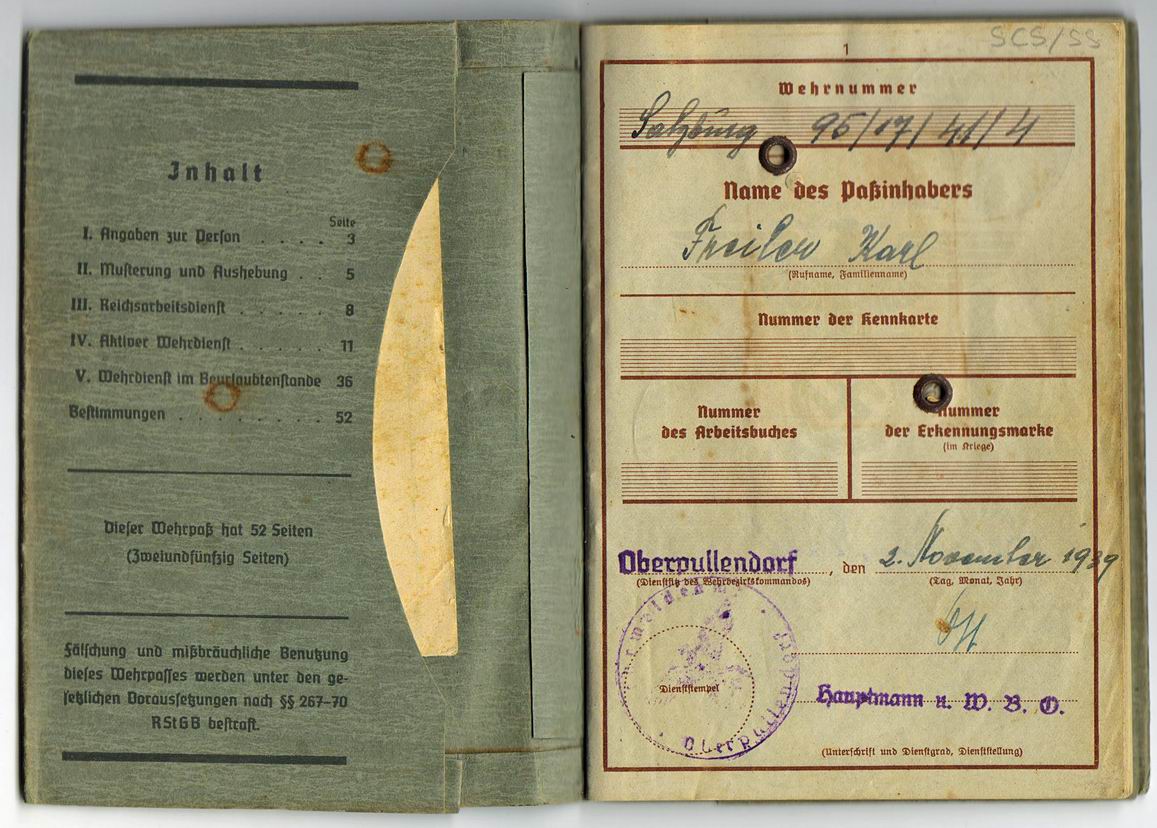 Inhalt
Seite
I. Angaben zur Person . . . . 3
II. Musterung und Aushebung . . 5
III. Reichsarbeitsdienst . . . . . 8
IV. Aktiver Wehrdienst . . . . . 11
V. Wehrdienst im Beurlaubtenstande 36
Bestimmungen . . . . . . . . 52
Dieser Wehrpaß hat 52 Seiten
(Zweiundfünfzig Seiten)
Fälschung und mißbräuchliche Benutzung
dieses Wehrpasses werden unter den ge-
setzlichen Voraussetzungen nach §§ 267–70
RStGB bestraft.
SCS/SS
1
Wehrnummer
Salzburg 95/17/41/4
Name des Paßinhabers
Freiler Karl
(Rufname, Familienname)
Nummer der Kennkarte
Nummer
des Arbeitsbuches
Nummer
der Erkennungsmarke
(im Kriege)
Oberpullendorf, den 2. November 1939
(Dienstsitz des Wehrbezirkskommandos)
(Tag, Monat, Jahr)
Dienststempel
Oberpullendorf
Hauptmann u. W. B. O.
(Unterschrift und Dienstgrad, Dienststellung)